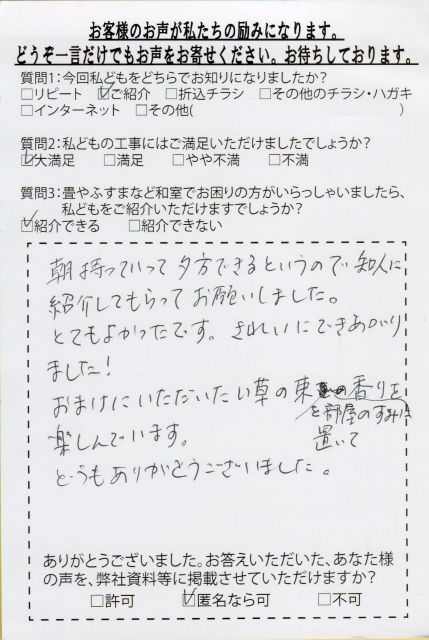 お客様のお声が私たちの励みになります。
どうぞ一言だけでもお声をお寄せください。お待ちしております。
質問1:今回私どもをどちらでお知りになりましたか?
□リピート ☑ご紹介 □折込チラシ □その他のチラシ・ハガキ
□インターネット □その他( )
質問2:私どもの工事にはご満足いただけましたでしょうか?
☑大満足 □満足 □やや不満 □不満
質問3:畳やふすまなど和室でお困りの方がいらっしゃいましたら、
私どもをご紹介いただけますでしょうか?
☑紹介できる □紹介できない
朝持っていって夕方できるというので知人に
紹介してもらってお願いしました。
とてもよかったです。きれいにできあがり
ました!
おまけにいただいたい草の束 香りを
を部屋のすみに
置いて
楽しんでいます。
どうもありがとうございました。
ありがとうございました。お答えいただいた、あなた様
の声を、弊社資料等に掲載させていただけますか?
□許可 ☑匿名なら可 □不可